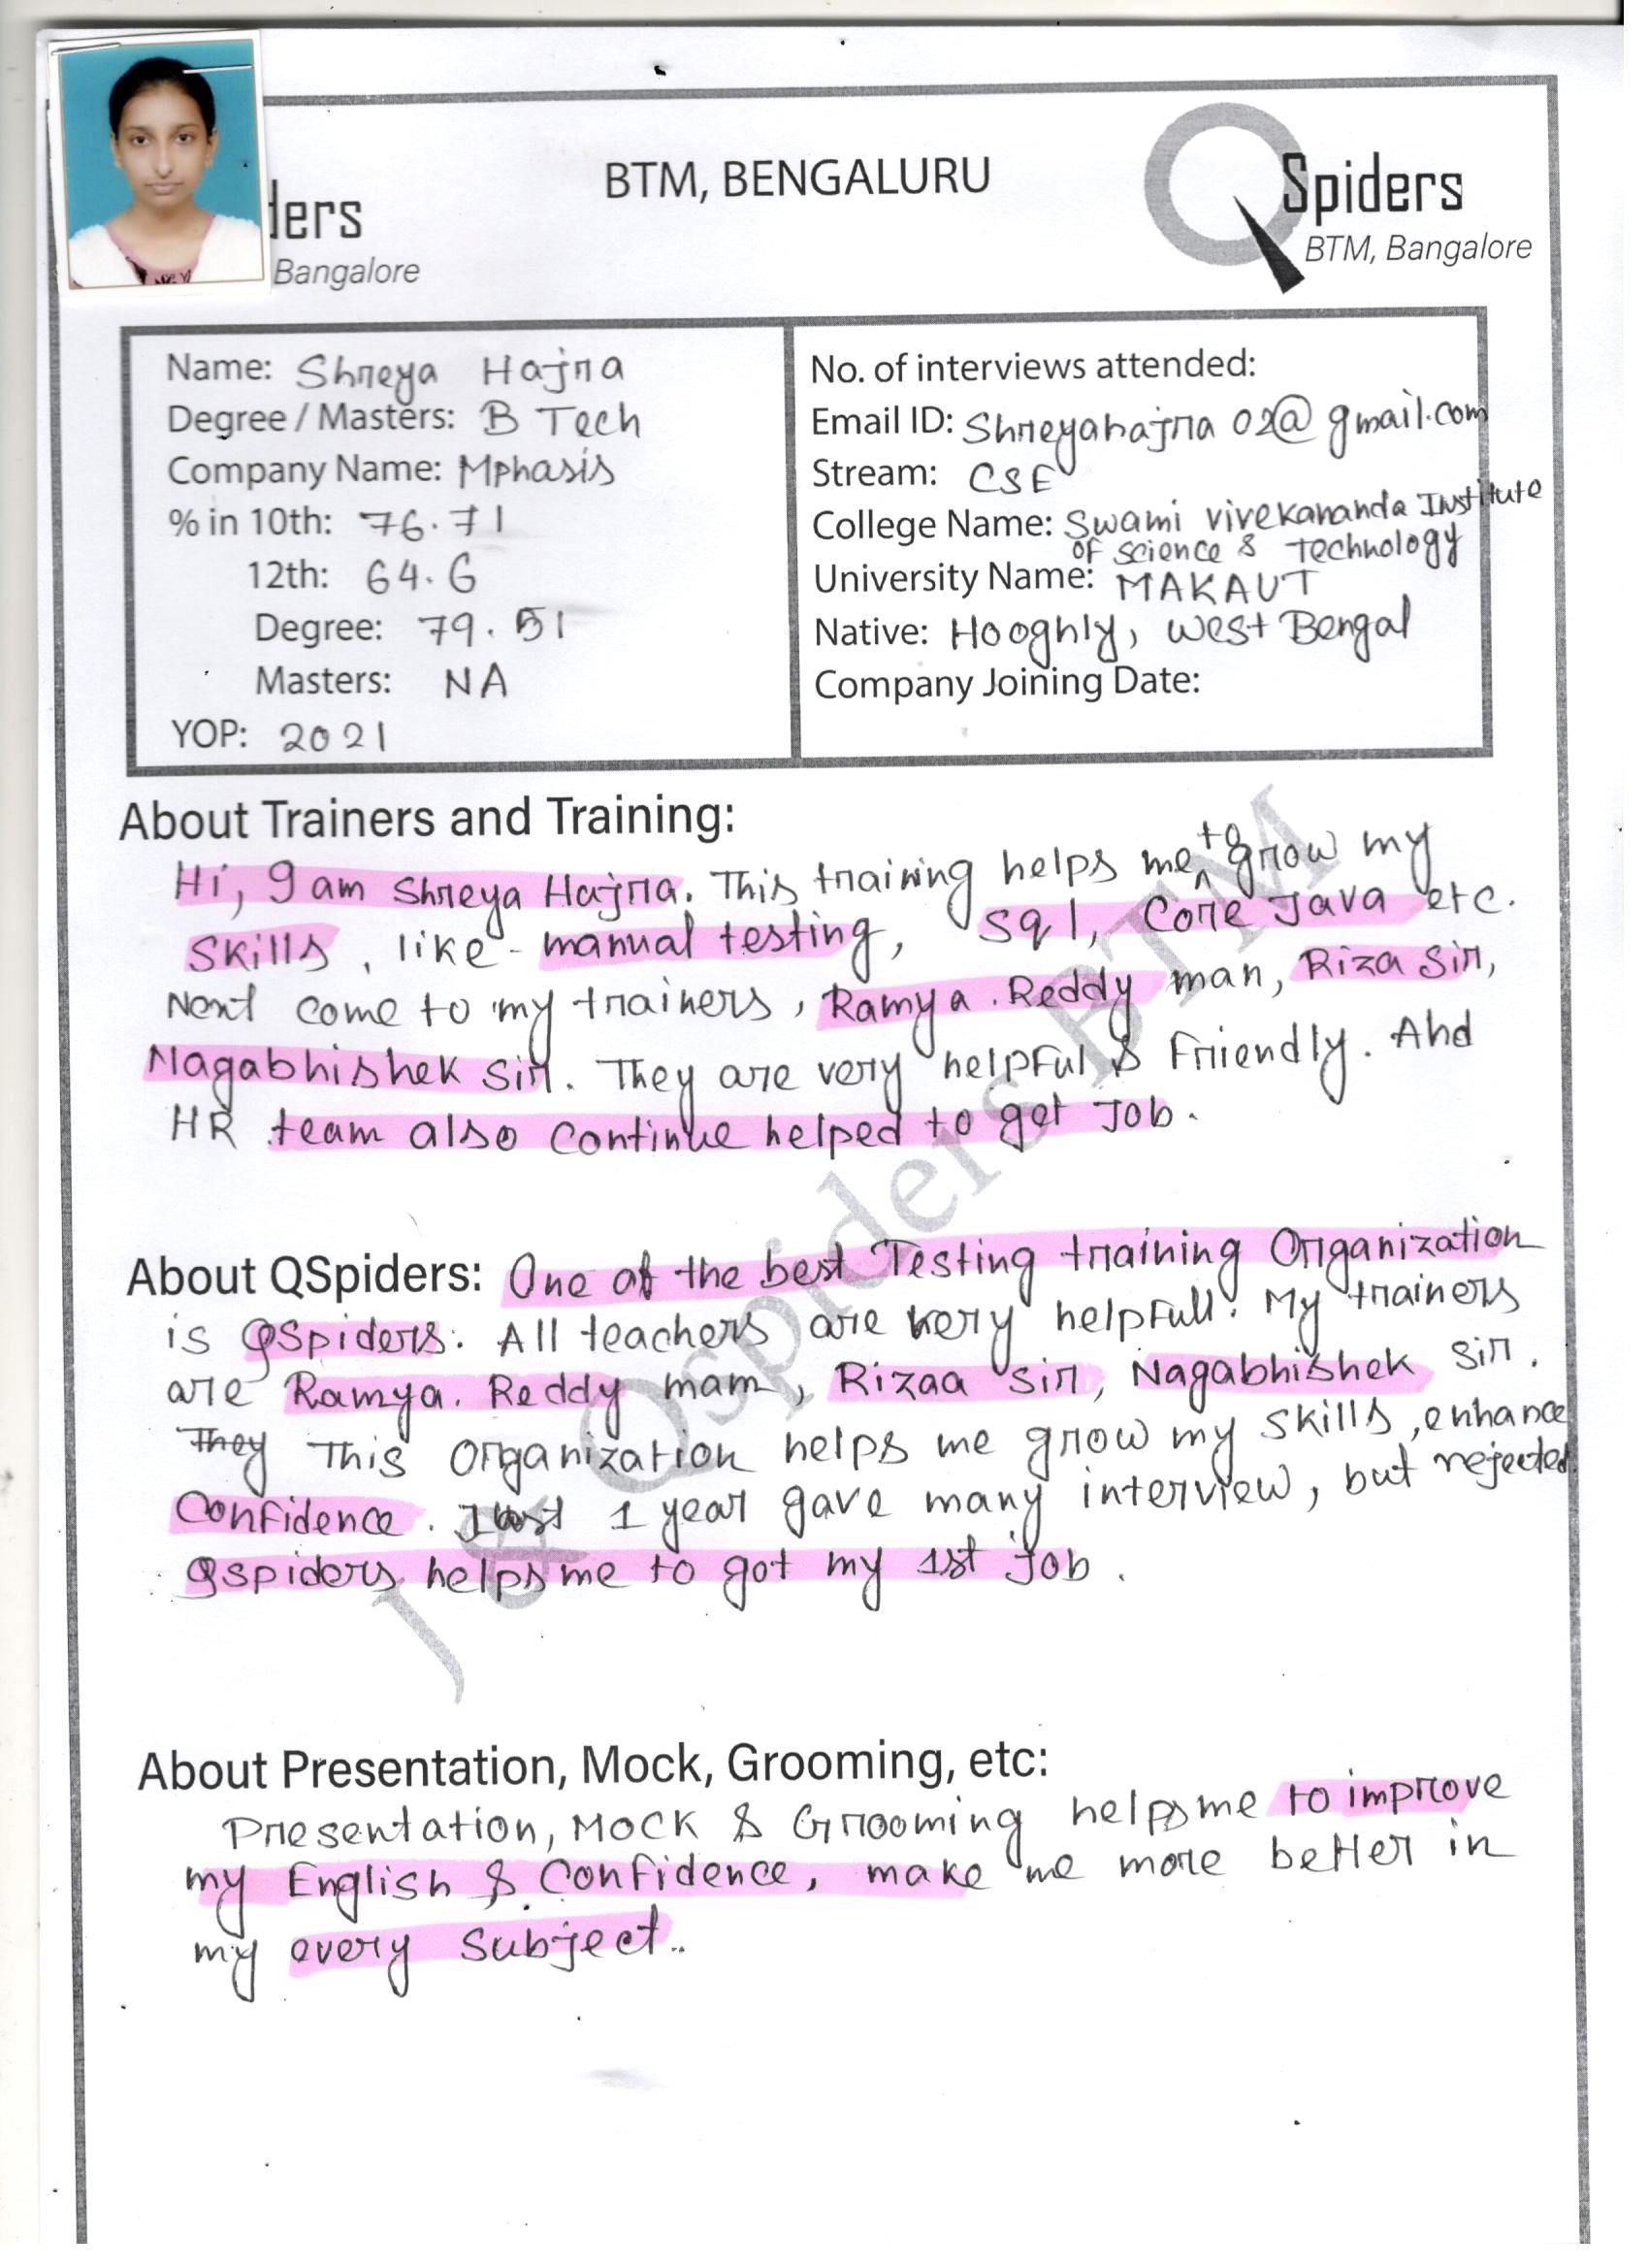 BTM, BENGALURU
ders
Bangalore
QSpiders
BTM, Bangalore
Name: Shreya Hajra
Degree / Masters: B Tech
Company Name: Mphasis
% in 10th: 76.71
12th: 64.6
Degree: 79.51
Masters: NA
YOP: 2021
No. of interviews attended:
Email ID: Shreyahajra02@gmail.com
Stream: CSE
College Name: Swami Vivekananda Institute
of Science & Technology
University Name: MAKAUT
Native: Hooghly, West Bengal
Company Joining Date:
About Trainers and Training:
Hi, I am Shreya Hajra. This training helps me to grow my
Skills, like - manual testing, Sql, Core Java etc.
Next come to my trainers, Ramya. Reddy man, Riza Sir,
Nagabhishek Sir. They are very helpful & Friendly. And
HR team also continue helped to get Job.
About QSpiders: One of the best Testing training Organization
is QSpiders. All teachers are very helpfull. My trainers
are Ramya. Reddy mam, Rizaa sir, Nagabhishek Sir.
They This Organization helps me grow my skills, enhance
Confidence. 1 year gave many interview, but rejected
Qspiders helps me to got my 1st Job.
About Presentation, Mock, Grooming, etc:
Presentation, Mock & Grooming helps me to improve
my English & Confidence, make me more better in
my every Subject..
J & Qspiders BTM